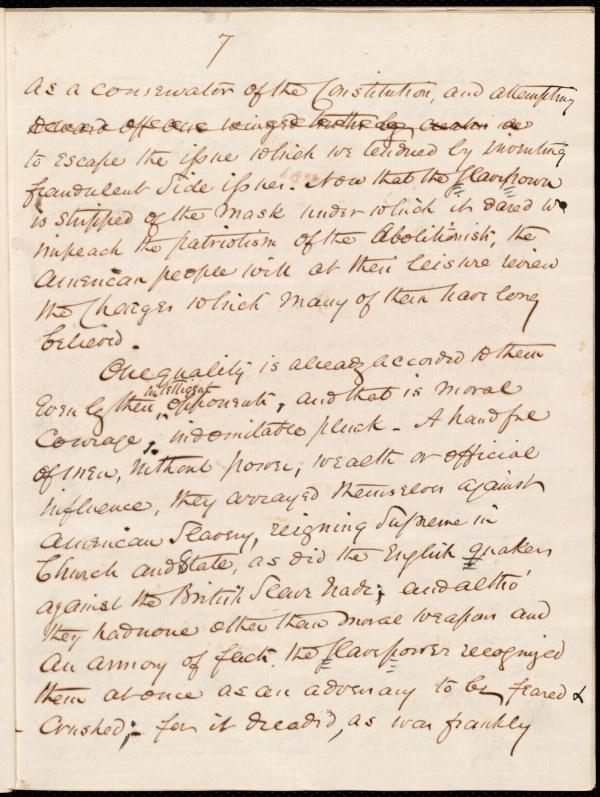 7
as a conservator of the Constitution, and attempting
to escape the issue which we tendered by inventing
fraudulent side issues. Now that the slavepower
is stripped of the mask under which it dared to
impeach the patriotism of the Abolitionists, the
American people will at their leisure review
the Charges which many of them have long
believed.
One quality is already accorded to them
Even by their intelligent opponents, and that is moral
Courage, indomitable pluck - A handful
of men, without power, wealth or official
influence, they arrayed themselves against
American Slavery, reigning Supreme in
Church and State, as did the English quakers
against the British Slave trade; and altho'
they had none other than moral weapons and
an armory of facts, the slavepower recognized
them at once as an adversary to be feared &
Crushed; - for it dreaded, as was frankly